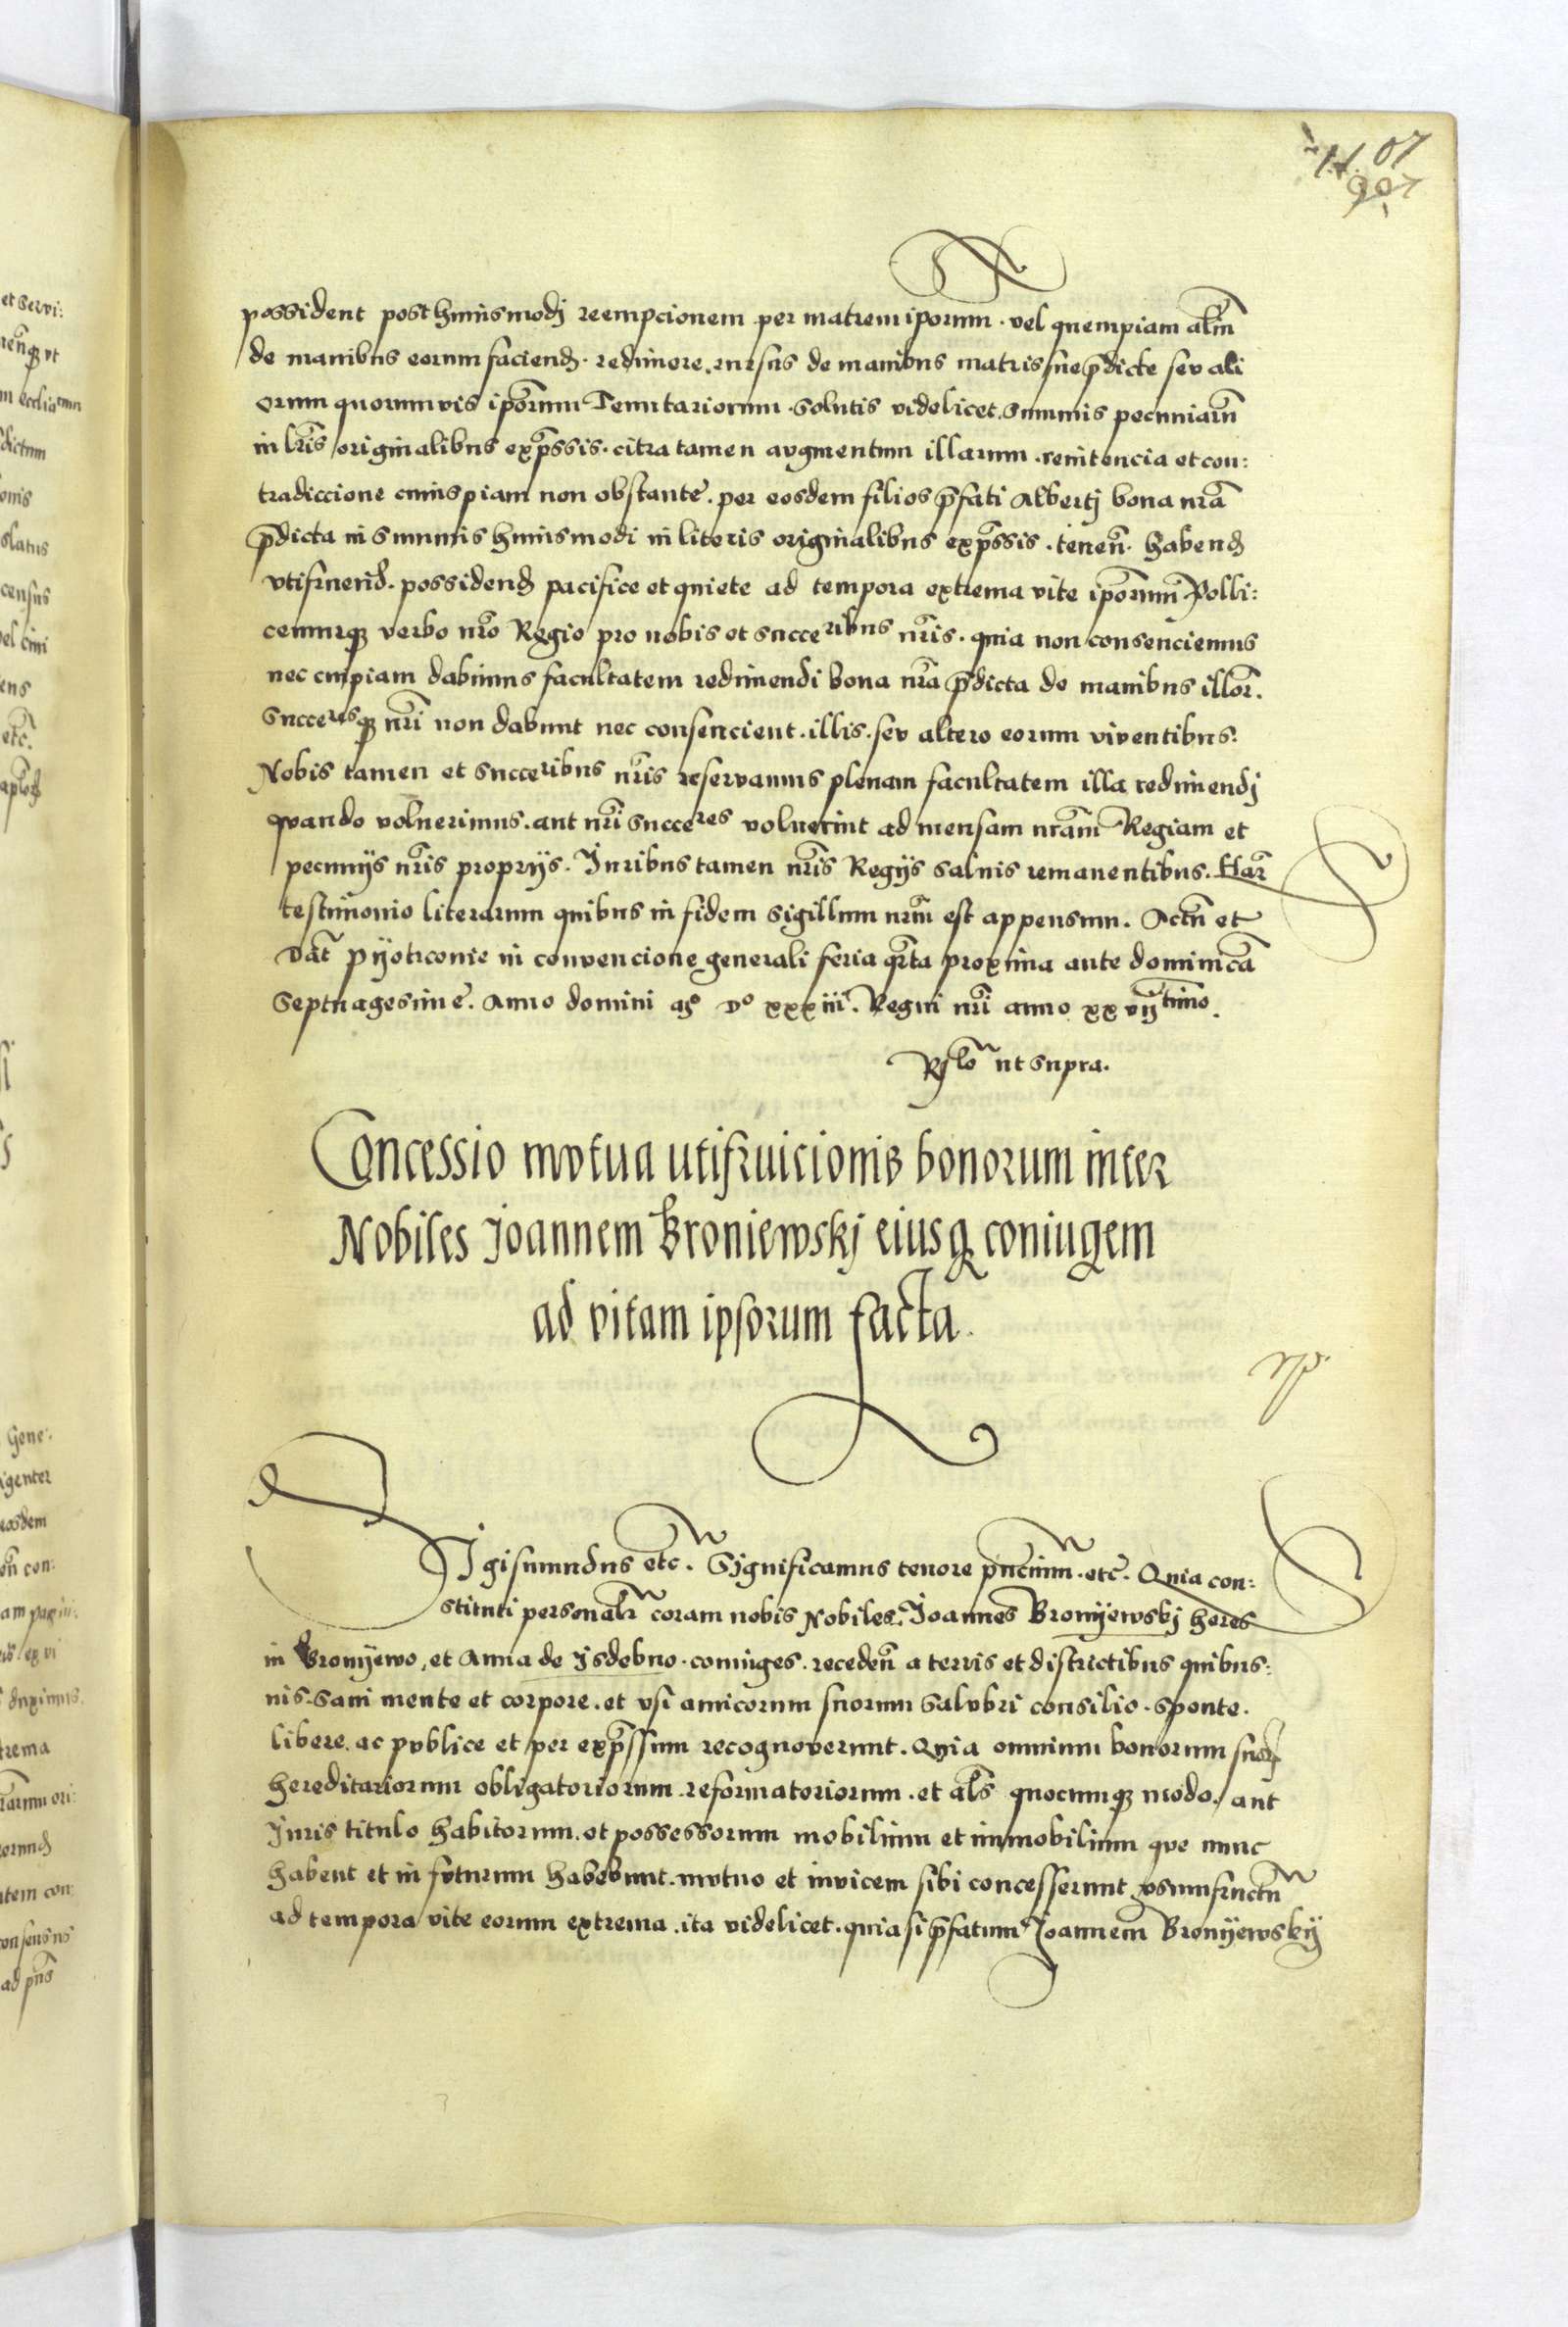 07
possident post huiusmodj reempcionem per matrem iporum. vel quempiam alm̃
de manibus eorum faciend. redimere. rursus de manibus matris sue p̃dicte sev ali
orum quorumvis ipõrum Tenutariorum. solutis videlicet. summis pecuniarũ
in lr̃is originalibus exp̃ssis. citra tamen avgmentum illarum. renitencia et con:
tradiccione cuiuspiam non obstante. per eosdem filios p̃fati Albertj bona nr̃a
p̃dicta in summis huiusmodi in literis originalibus exp̃ssis. tenen̄. habend
vtifruend. possidend pacifice et quiete ad tempora extrema vite ipõrum Polli:
cemurq verbo nr̃o Regio pro nobis et succeribus nr̃is. quia non consenciemus
nec cuipiam dabimus facultatem redimendi bona nr̃a p̃dicta de manibus illor.
Succeresq nr̃i non dabunt nec consencient. illis. sev altero eorum viventibus.
Nobis tamen et succeribus nr̃is reservamus plenam facultatem illa redimendj
quando voluerimus. aut nr̃i succeres voluerint ad mensam nr̃am Regiam et
pecunijs nr̃is proprijs. Iuribus tamen nr̃is Regijs salvis remanentibus. Har̃
testimonio literarum quibus in fidem sigillum nr̃m est appensum. Actũ et
Dat̃ Pyotrconie in convencione generali feria qr̃ta proxima ante dominicã
Septuagesime. Anno domini Mo Do xxxiiio. Regni nr̃i anno xxvijtimo.
Rlõ ut supra.
Concessio mvtua utifruicionis bonorum inter
Nobiles Joannem Broniewskj eiusq coniugem
ad vitam ipsorum facta.
Sigismundus etc̃. Significamus tenore pñcium. etc̃. Quia con:
stituti personalr̃ coram nobis Nobiles. Joannes Bronyewskj heres
in Bronyewo, et Anna de Jsdebno. coniuges. receden̄ a terris et districtibus quibus:
vis. Sani mente et corpore. et vsi amicorum suorum salvbri consilio. sponte.
libere. ac pvblice et per exp̃ssum recognoverunt. Quia omnium bonorum suor
hereditariorum obligatoriorum. reformatoriorum. et als̃ quocumq modo, aut
Iuris titulo habitorum. et possessorum mobilium et immobilium que nunc
habent et in fvturum habebunt. mvtuo et invicem sibi concesserunt vsumfructũ
ad tempora vite eorum extrema. ita videlicet. quia si p̃fatum Joannem Bronyewskij